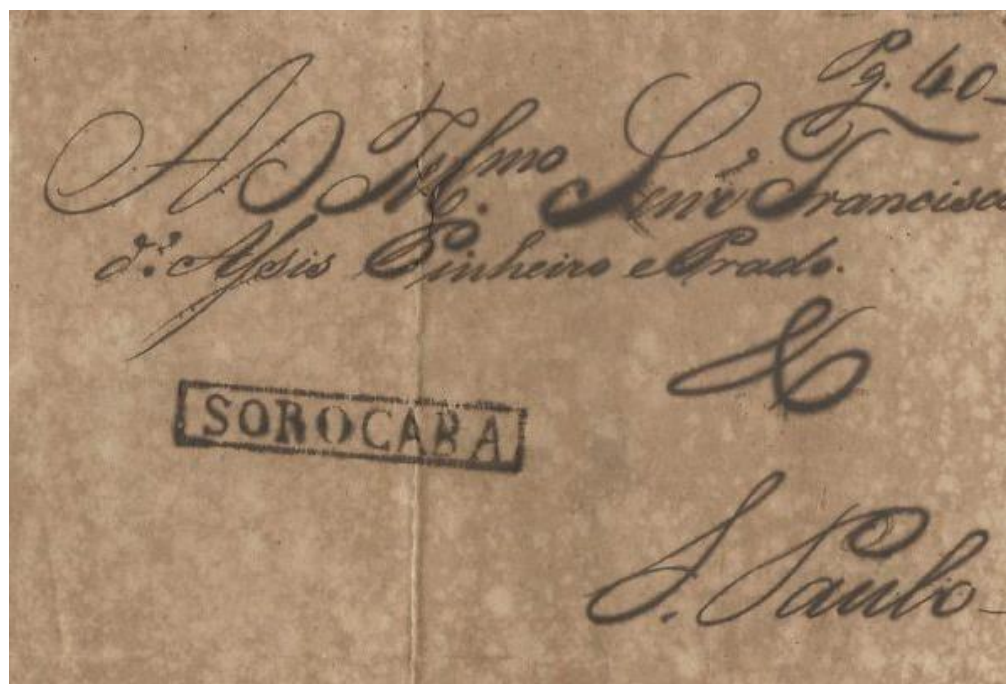 Pg. 40
Ao Illmo Senr Francisco
de Assis Pinheiro e Prado.
SOROCABA
S. Paulo